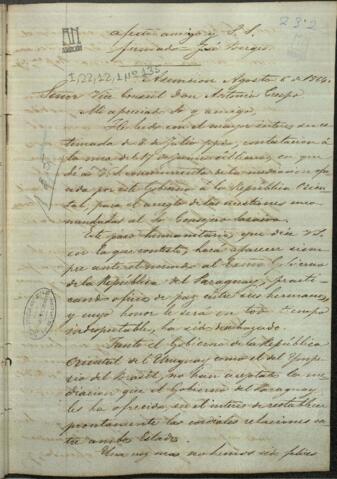 232
afectmo amigo y S. S.
firmado = José Berges.
I, 22, 12, 1 Nº 135
Asuncion Agosto 6 de 1864.
Señor Vice Consul Don Antonio Crespo
Mi apreciado y amigo,
He leido con el mayor interes su es-
timada de 8 de Julio ppdo, contestacion á
la mia de 17 de Junio último, en que
de la mediacion ofre-
cida por este Gobierno á la República Orien-
tal, para el arreglo de las cuestiones enco-
mendadas al Sr Consejero Saraiva.
Este paso humanitario, que dice US.
en la que contesto, hará aparecer siem-
pre ante el mundo al Exmo Gobierno
de la República del Paraguay, practi-
cando oficios de paz entre sus hermanos,
y cuyo honor le será en todo tiempo
indisputable, ha sido
Tanto el Gobierno de la República
Oriental del Uruguay como el del Impe-
rio del Brasil, no han aceptado la me-
diacion que el Gobierno del Paraguay
les ha ofrecido en el interes de restablecer
prontamente las cordiales relaciones en-
tre ambos Estados.
Una vez mas no hemos sido